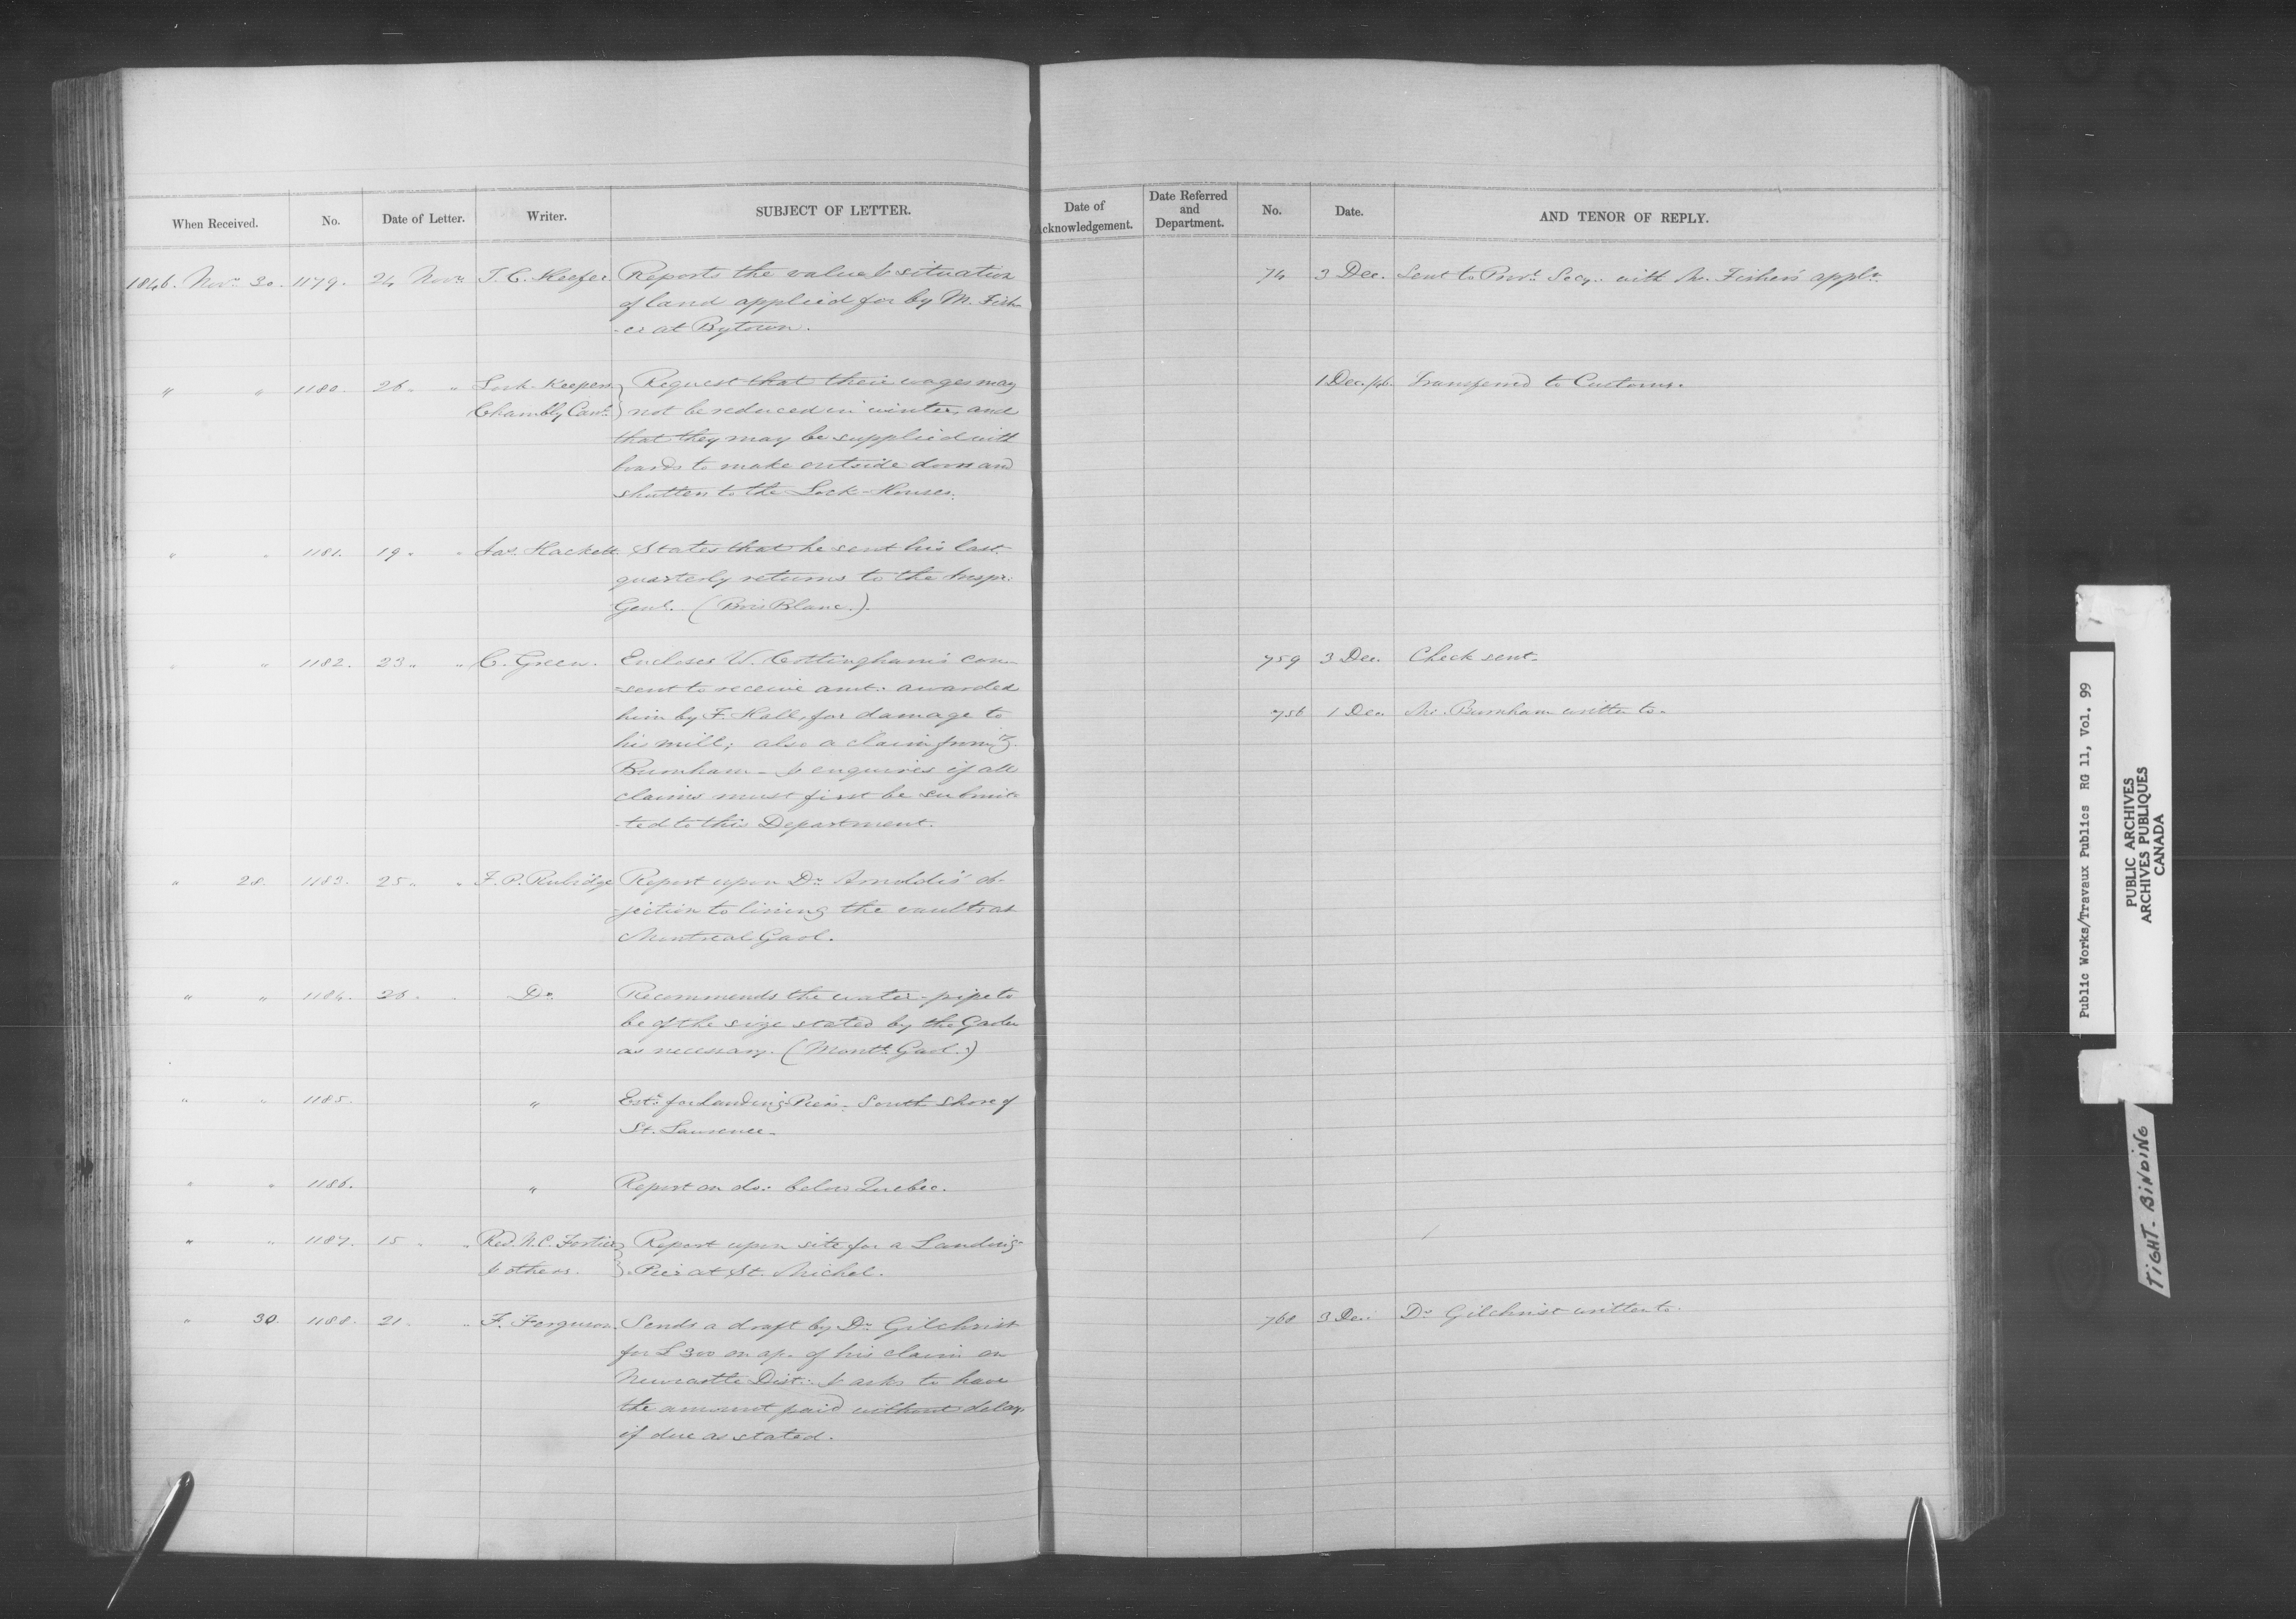 When Received. No. Date of Letter. Writer. SUBJECT OF LETTER.
1846. Novr. 30. 1179. 24 Novr. T. C. Keefer. Reports the value & situation
of land applied for by M. Fish-
-er at Bytown.
" " 1180. 26 " " Lock-Keepers Request that their wages may
Chambly Canl. not be reduced in winter, and
that they may be supplied with
boards to make outside doors and
shutters to the Lock-Houses.
" " 1181. 19 " " Jas. Hackett. States that he sent his last
quarterly returns to the Inspr.
Genl. (Bois Blanc.)
" " 1182. 23 " " C. Green. Encloses W. Cottingham's con-
-sent to receive amt. awarded
him by F. Hall, for damage to
his mill; also a claim from Z.
Burnham - & enquires if all
claims must first be submit-
-ted to this Department.
" 28. 1183. 25 " " F. P. Rubidge Report upon Dr. Arnoldi's ob-
-jection to lining the vaults at
Montreal Gaol.
" " 1184. 26 " " Do. Recommends the water-pipe to
be of the size stated by the Gaoler
as necessary. (Montl. Gaol.)
" " 1185. " Este. for Landing Piers, South Shore of
St. Lawrence.
" " 1186. " Report on do. below Quebec.
" " 1187. 15 " " Revd. N. C. Fortier Report upon site for a Landing
& others. Pier at St. Michel.
" 30. 1188. 21 " " F. Ferguson. Sends a draft by Dr. Gilchrist
for £300 on ap. of his claim on
Newcastle Dist. & asks to have
the amount paid without delay,
if due as stated.
Date of
Acknowledgement.
Date Referred
and
Department.
No. Date. AND TENOR OF REPLY.
74 3 Dec. Sent to Provl. Secy. with Mr. Fisher's appln.
1 Dec. /46. Transferred to Customs.
759 3 Dec. Check sent.
756 1 Dec. Mr. Burnham written to.
760 3 Dec. Dr. Gilchrist written to.
Public Works/Travaux Publics RG 11, Vol. 99
PUBLIC ARCHIVES
ARCHIVES PUBLIQUES
CANADA
TIGHT BINDING